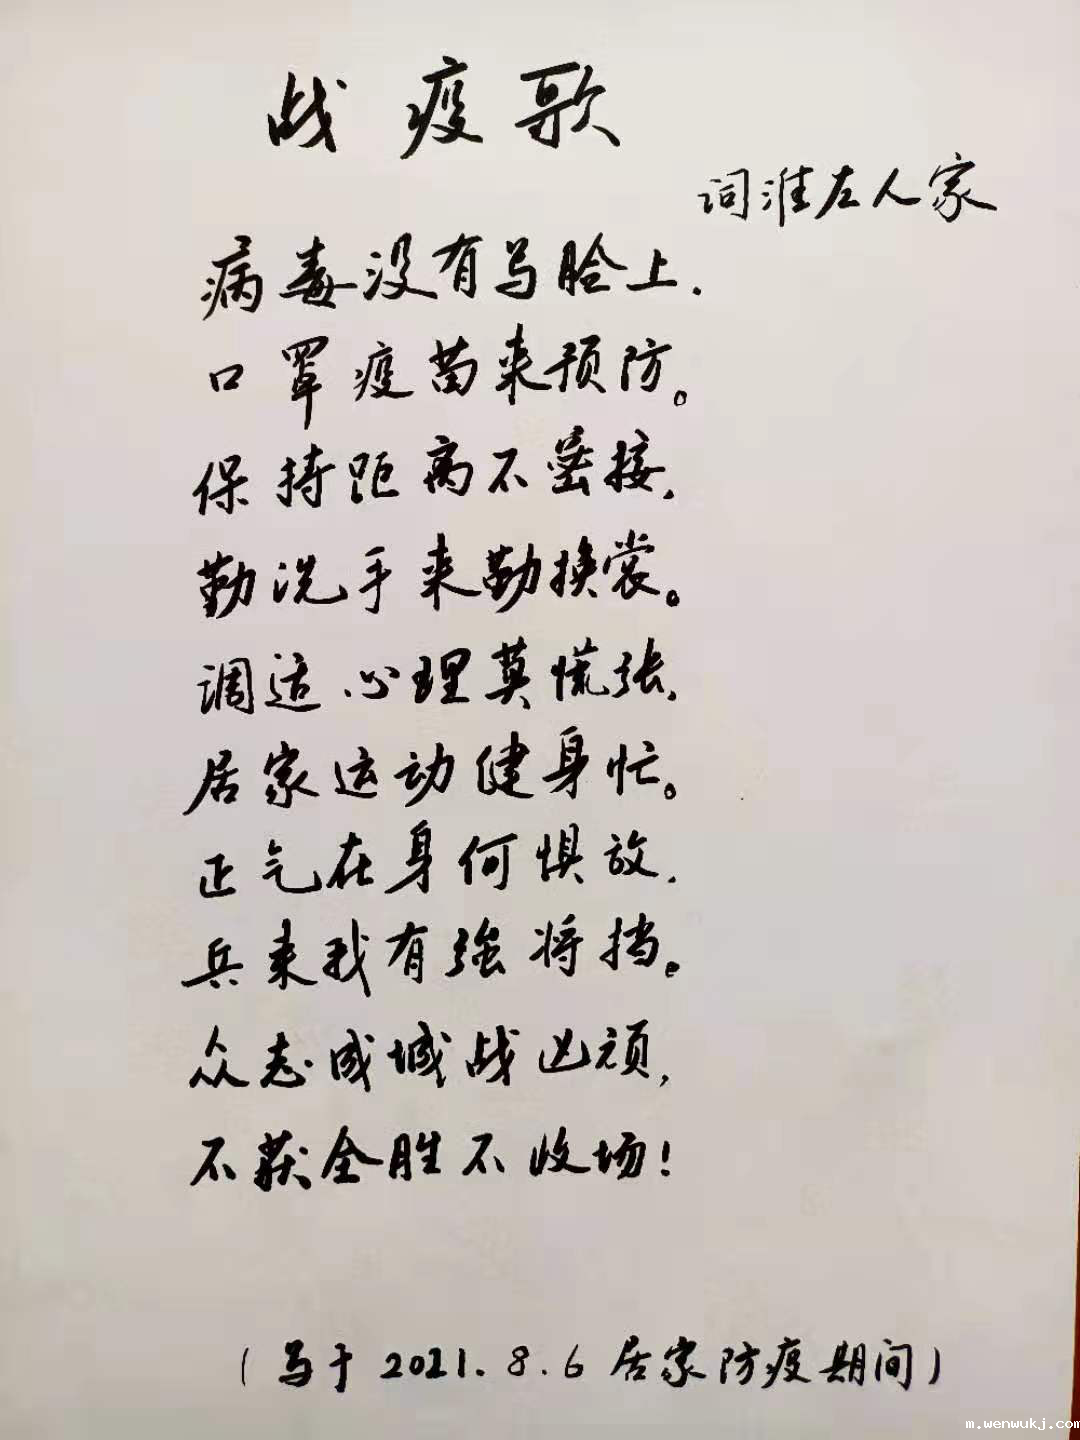 战疫歌
词淮左人家
病毒没有写脸上.
口罩疫苗来预防。
保持距离不密接,
勤洗手来勤换裳。
调适心理莫慌张,
居家运动健身忙。
正气在身何惧放,
兵来我有强将挡。
众志成城战凶顽,
不获全胜不收场!
(写于2021.8.6居家防疫期间)
m.wenwukj.com